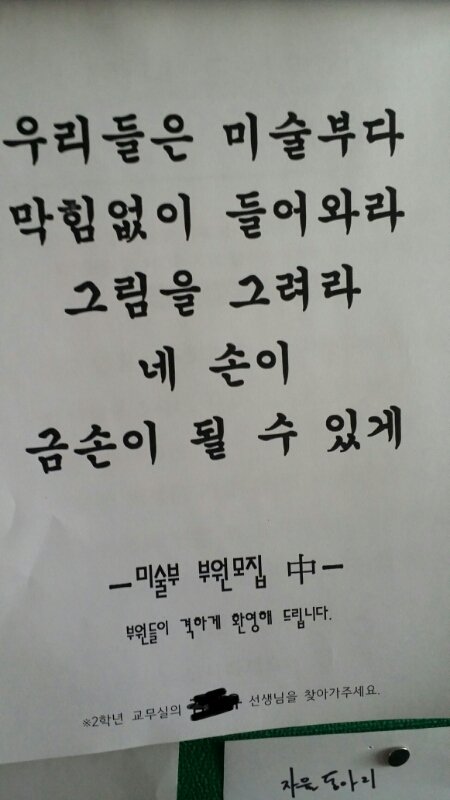 우리들은 미술부다
막힘없이 들어와라
그림을 그려라
네 손이
금손이 될 수 있게
ー미술부 부원모집 中ー
부원들이 격하게 환영해 드립니다.
※2학년 교무실의 선생님을 찾아가주세요.
자율동아리